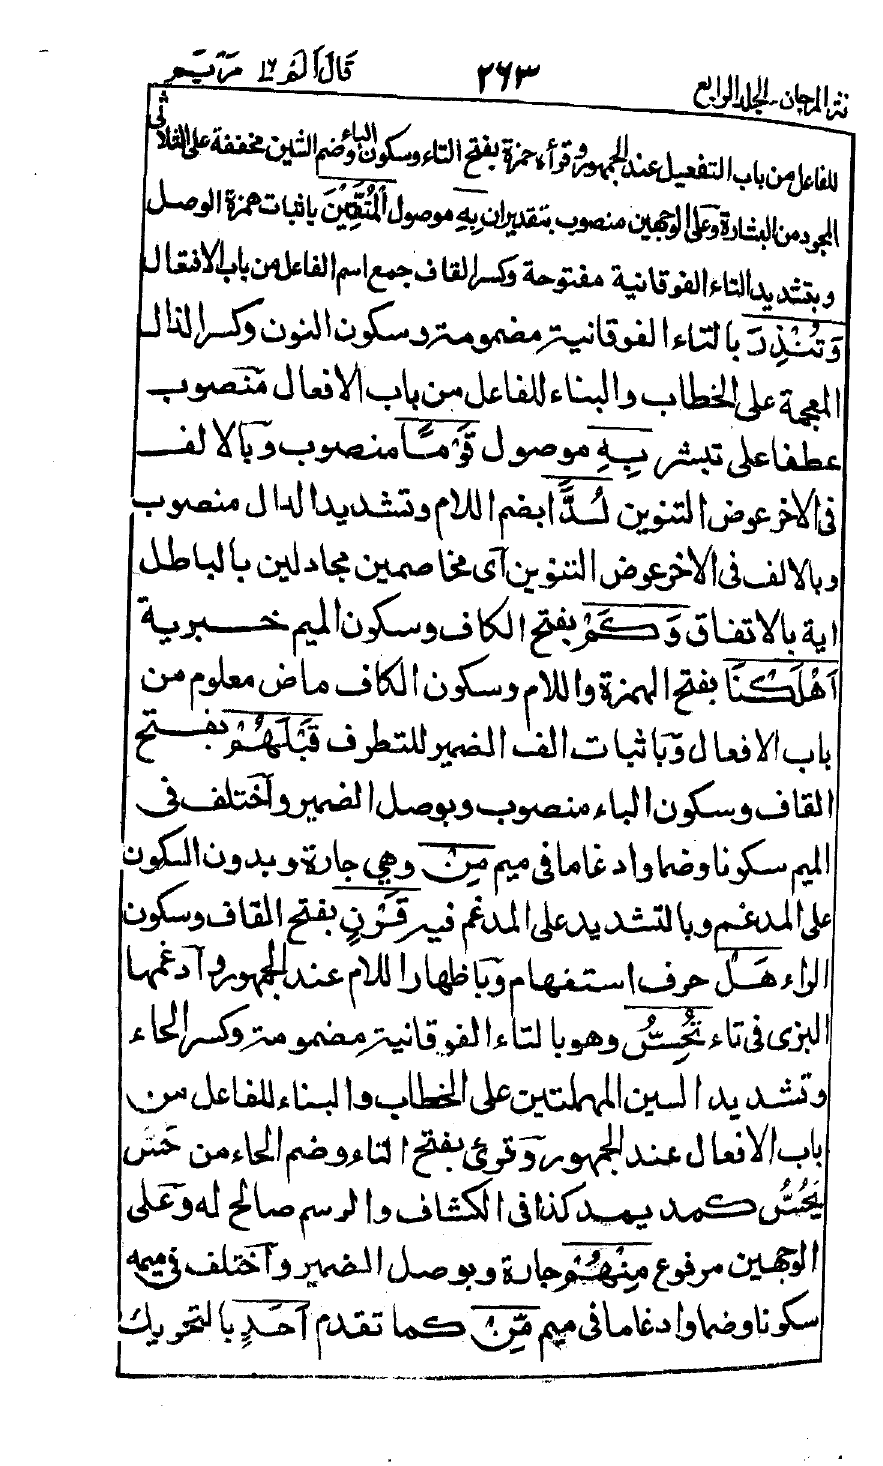 نثر المرجان ـ المجلد الرابع ٢٦٣ قال الم ١٦ مريم
للفاعل من باب التفعيل عند الجمهور وقرأه حمزة بفتح التاء وسكون الباء وضم الشين مخففة على الثلاثى
المجرد من البشارة وعلى الوجهين منصوب بتقدير ان بِهِ موصول الْمُتَّقِيْنَ باثبات همزة الوصل
وبتشديد التاء الفوقانية مفتوحة وكسر القاف جمع اسم الفاعل من باب الافتعال
وَتُنْذِرَ بالتاء الفوقانية مضمومة وسكون النون وكسر الذال
المعجمة على الخطاب والبناء للفاعل من باب الافعال منصوب
عطفا على تبشر بِهِ موصول قَوْمًا منصوب وبالالف
فى الاخر عوض التنوين لُدًّا بضم اللام وتشديد الدال منصوب
وبالالف فى الاخر عوض التنوين اى مخاصمين مجادلين بالباطل
اية بالاتفاق وَكَمْ بفتح الكاف وسكون الميم خبرية
اَهْلَكْنَا بفتح الهمزة واللام وسكون الكاف ماض معلوم من
باب الافعال وباثبات الف الضمير للتطرف قَبْلَهُمْ بفتح
القاف وسكون الباء منصوب وبوصل الضمير واختلف فى
الميم سكونا وضما وادغاما فى ميم مِنْ وهي جارة وبدون السكون
على المدغم وبالتشديد على المدغم فيه قَرْنٍ بفتح القاف وسكون
الراء هَلْ حرف استفهام وباظهار اللام عند الجمهور وادغمها
البزى فى تاء تُحِسُّ وهو بالتاء الفوقانية مضمومة وكسر الحاء
وتشديد السين المهملتين على الخطاب والبناء للفاعل من
باب الافعال عند الجمهور وقرئ بفتح التاء وضم الحاء من حَسَّ
يَحُسُّ كمد يمد كذا فى الكشاف والرسم صالح له وعلى
الوجهين مرفوع مِنْهُمْ جارة وبوصل الضمير واختلف فى ميمه
سكونا وضما وادغاما فى ميم مِّنْ كما تقدم اَحَدٍ بالتحريك